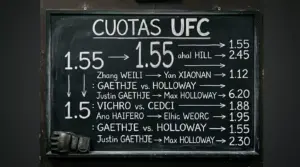 CUOTAS UFC
1.55 → 1.55 → 1.55
ahal HILL → 2.45
Zhang WEILI → Yan XIAONAN → 1.12
: GAETHJE vs. HOLLOWAY
Justin GAETHJE → Max HOLLOWAY → 6.20
1.5: VICHRO vs. CEDCI → 1.88
Ano HAIFERO → Elhic WEORC → 1.95
: GAETHJE vs. HOLLOWAY → 1.55
Justin GAETHJE → Max HOLLOWAY → 2.30